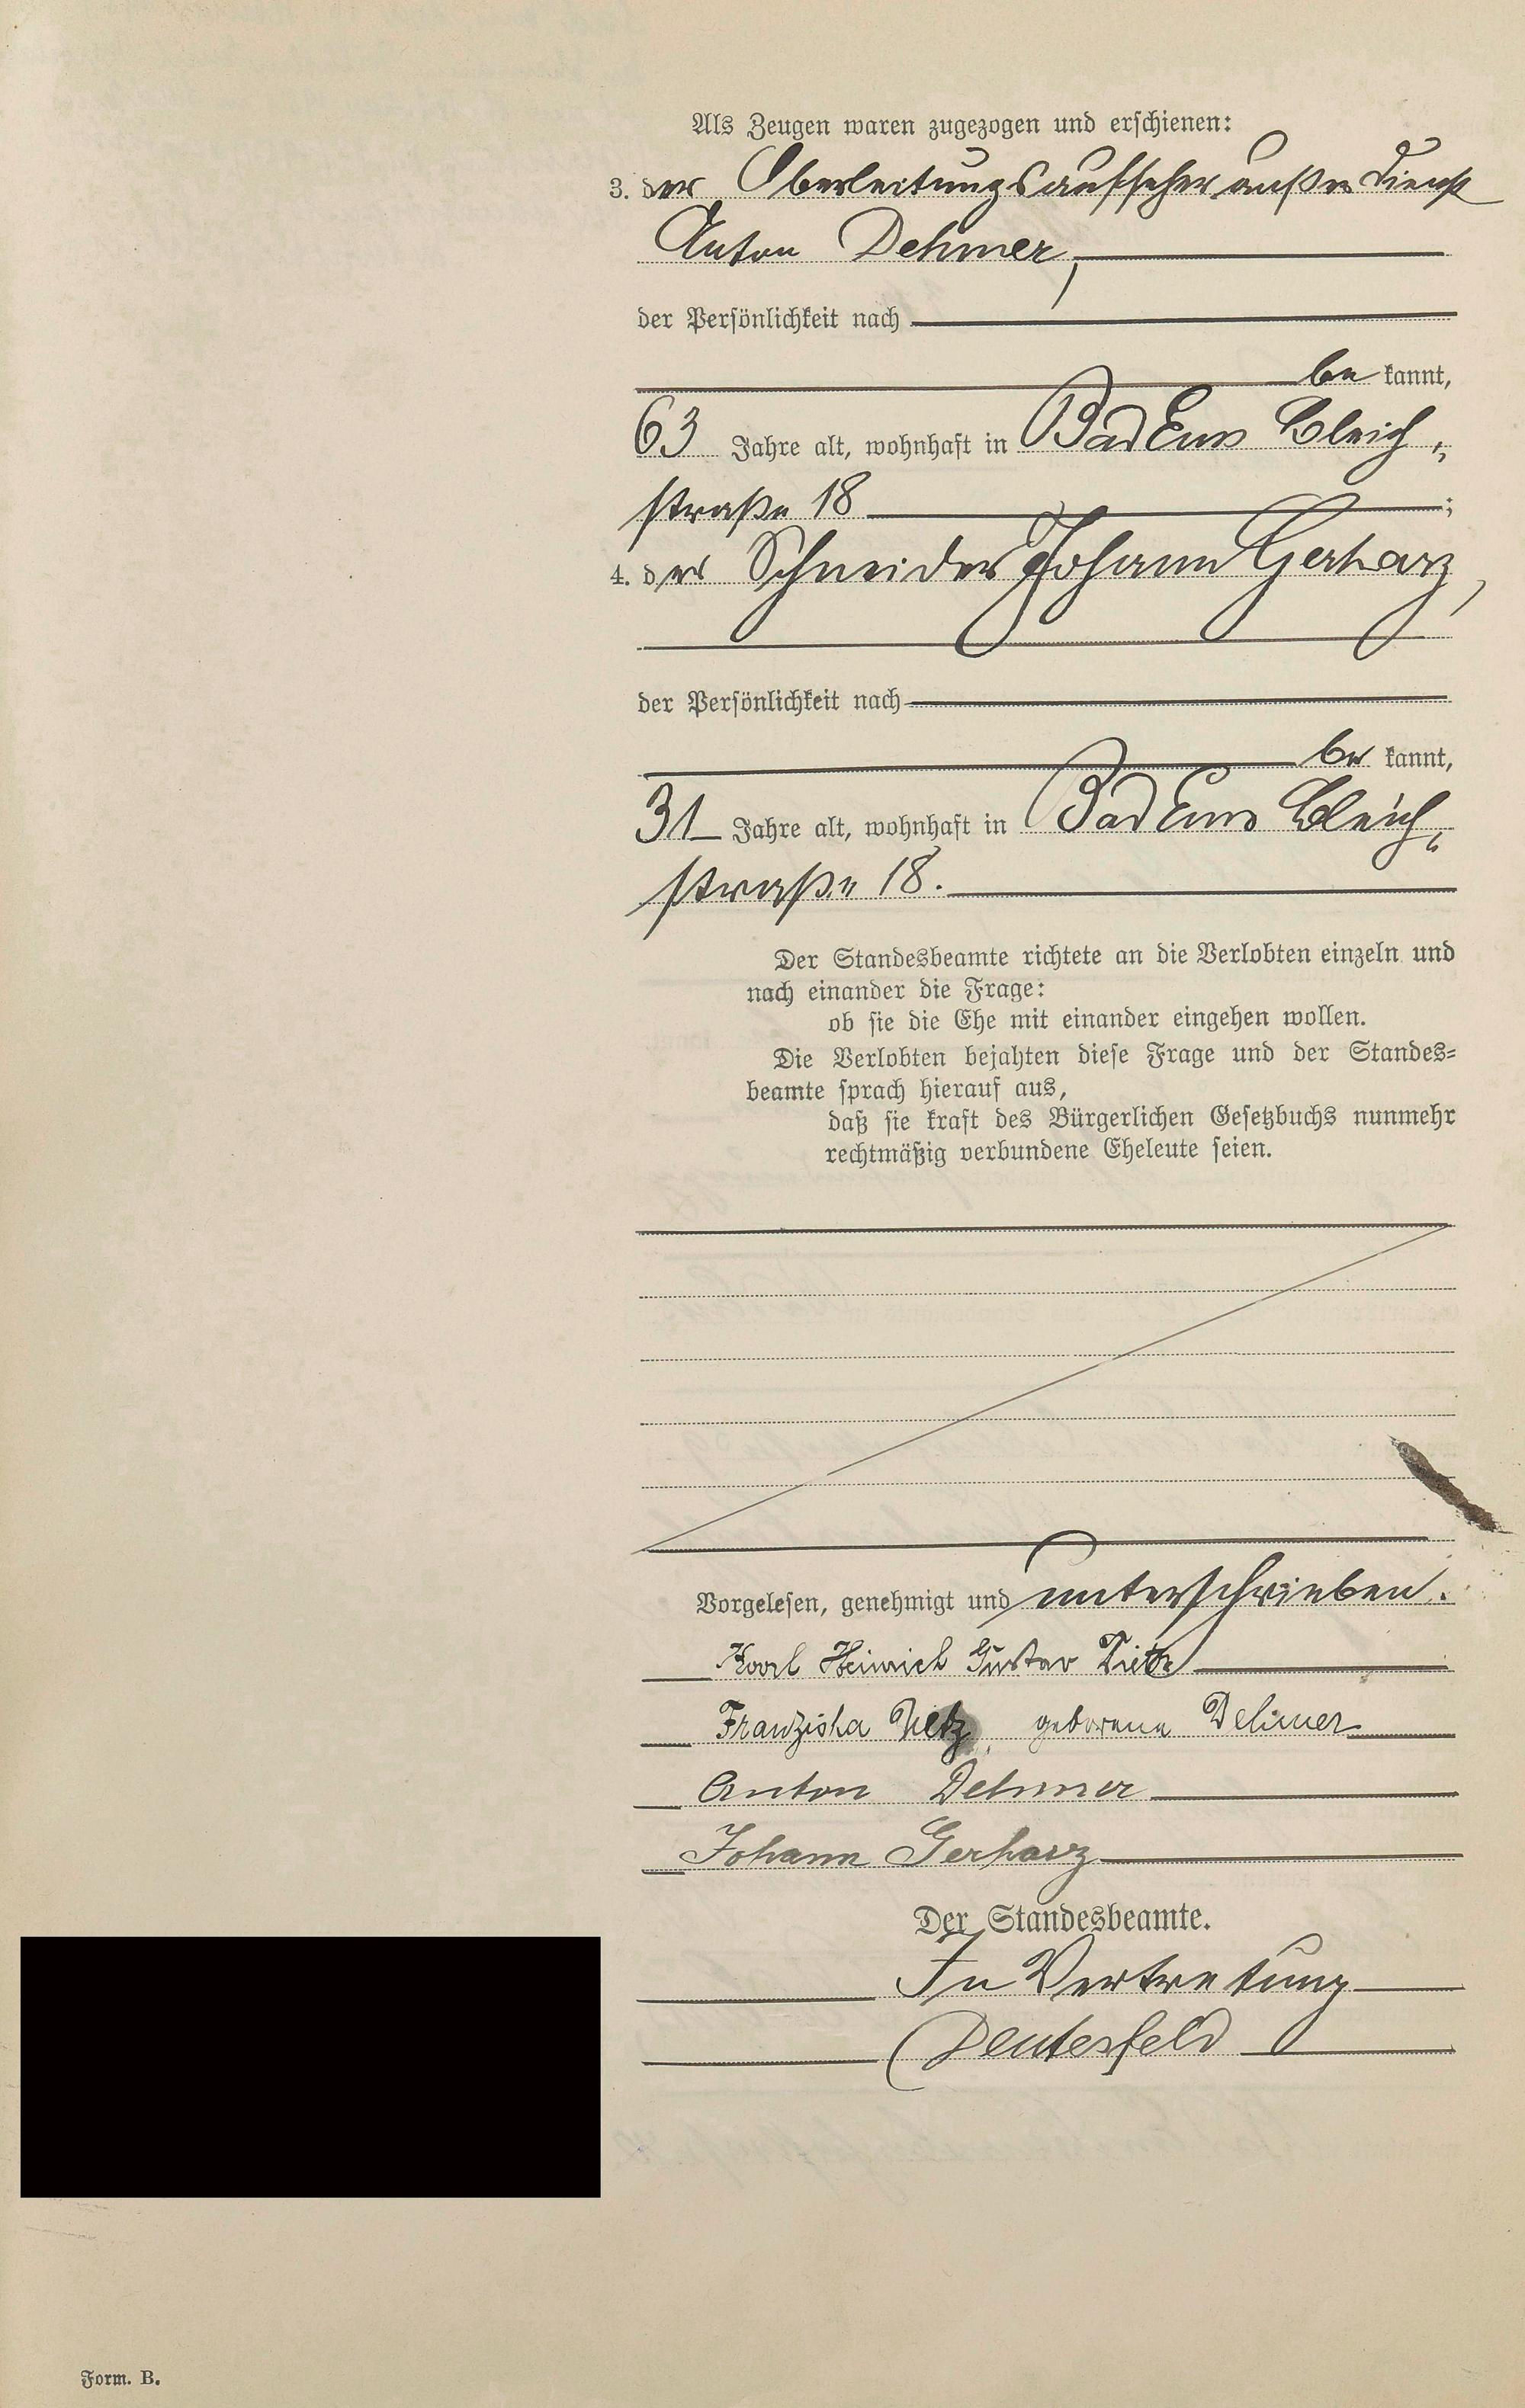 Als Zeugen waren zugezogen und erschienen:
3. der Oberleitungsaufseher außer Dienst
Anton Dehmer,
der Persönlichkeit nach
be kannt,
63 Jahre alt, wohnhaft in Bad Ems Bleich-
straße 18 ;
4. der Schneider Johann Gerharz,
der Persönlichkeit nach
be kannt,
31 Jahre alt, wohnhaft in Bad Ems Bleich-
straße 18.
Der Standesbeamte richtete an die Verlobten einzeln und
nach einander die Frage:
ob sie die Ehe mit einander eingehen wollen.
Die Verlobten bejahten diese Frage und der Standes-
beamte sprach hierauf aus,
daß sie kraft des Bürgerlichen Gesetzbuchs nunmehr
rechtmäßig verbundene Eheleute seien.
Vorgelesen, genehmigt und unterschrieben.
Karl Heinrich Gustav
Franziska geborene Dehmer
Anton Dehmer
Johann Gerharz
Der Standesbeamte.
In Vertretung
Deutesfeld
Form. B.